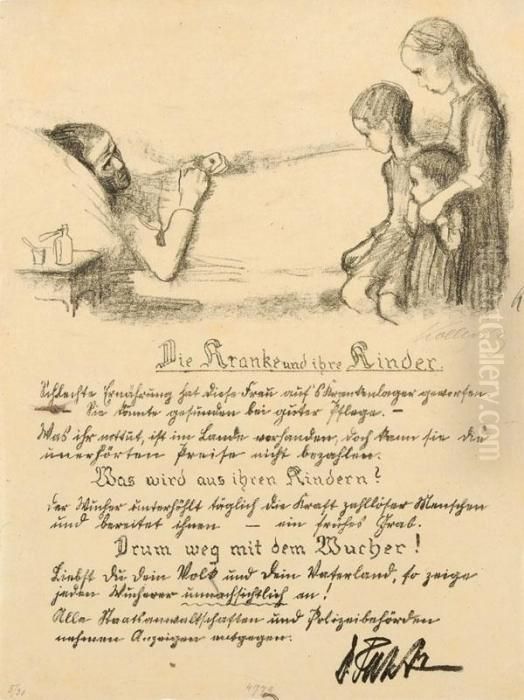 Kollwitz
Die Kranke und ihre Kinder.
Schlechte Ernährung hat diese Frau auf's Krankenlager geworfen
Sie könnte gesunden bei guter Pflege. —
Was ihr nottut, ist im Lande vorhanden, doch kann sie die
unerhörten Preise nicht bezahlen.
Was wird aus ihren Kindern?
Der Wucher unterhöhlt täglich die Kraft zahlloser Menschen
und bereitet ihnen — ein frühes Grab.
Drum weg mit dem Wucher!
Liebst Du Dein Volk und Dein Vaterland, so zeige
jeden Wucherer unnachsichtlich an!
Alle Staatsanwaltschaften und Polizeibehörden
nehmen Anzeigen entgegen.